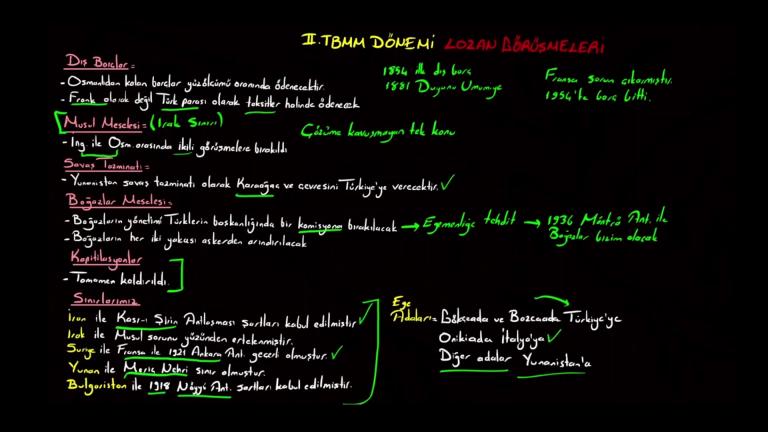 II. TBMM DÖNEMİ LOZAN GÖRÜŞMELERİ
Dış Borçlar =
- Osmanlıdan kalan borçlar yüzölçümü oranında ödenecektir.
- Frank olarak değil Türk parası olarak taksitler halinde ödenecek
1854 ilk dış borç
1881 Duyunu Umumiye
Fransa sorun çıkarmıştır.
1954'te borç bitti.
Musul Meselesi = (Irak Sınırı)
- İng. ile Osm. arasında ikili görüşmelere bırakıldı
Çözüme kavuşmayan tek konu
Savaş Tazminatı =
- Yunanistan savaş tazminatı olarak Karaağaç ve çevresini Türkiye'ye verecektir.
Boğazlar Meselesi =
- Boğazların yönetimi Türklerin başkanlığında bir komisyona bırakılacak → Egemenliğe tehdit → 1936 Montrö Ant. ile
Boğazlar bizim olacak
- Boğazların her iki yakası askerden arındırılacak
Kapitilasyonlar
- Tamamen kaldırıldı.
Sınırlarımız
İran ile Kasr-ı Şirin Antlaşması şartları kabul edilmiştir
Irak ile Musul sorunu yüzünden ertelenmiştir.
Suriye ile Fransa ile 1921 Ankara Ant. geçerli olmuştur.
Yunan ile Meriç Nehri sınır olmuştur.
Bulgaristan ile 1918 Nöyyi Ant. şartları kabul edilmiştir.
Ege
Adaları = Gökçeada ve Bozcaada Türkiye'ye
Onikiada İtalya'ya
Diğer adalar Yunanistan'a